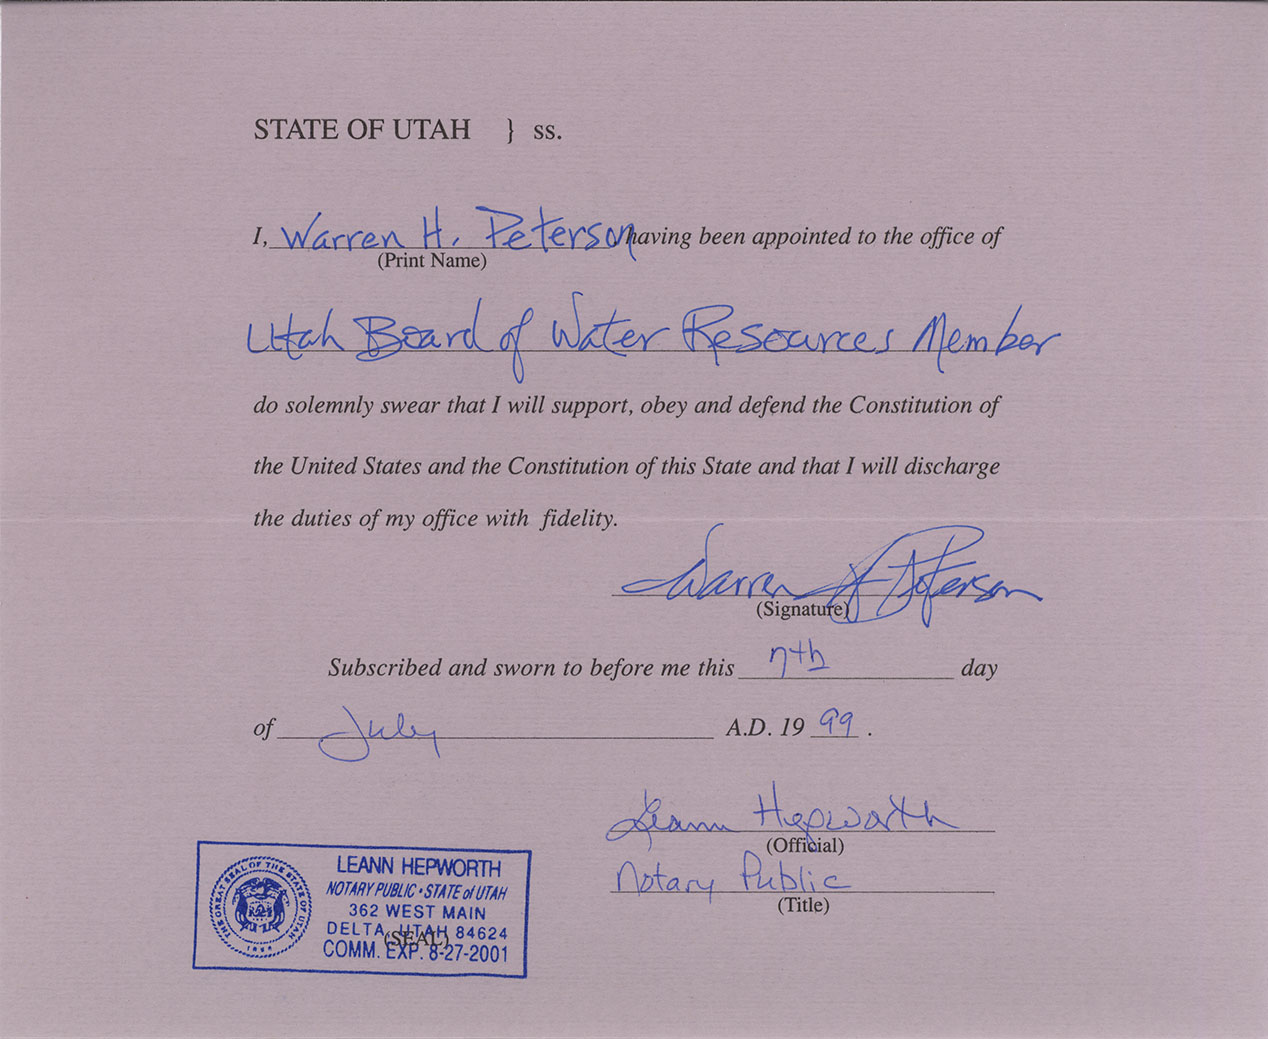 STATE OF UTAH } ss.
I, Warren H. Peterson having been appointed to the office of
(Print Name)
Utah Board of Water Resources Member
do solemnly swear that I will support, obey and defend the Constitution of
the United States and the Constitution of this State and that I will discharge
the duties of my office with fidelity.
Warren H Peterson
(Signature)
Subscribed and sworn to before me this 7th day
of July A.D. 19 99 .
Leann Hepworth
(Official)
Notary Public
(Title)
THE GREAT SEAL OF THE STATE OF UTAH
1896
LEANN HEPWORTH
NOTARY PUBLIC • STATE of UTAH
362 WEST MAIN
DELTA, UTAH 84624
(SEAL)
COMM. EXP. 8-27-2001